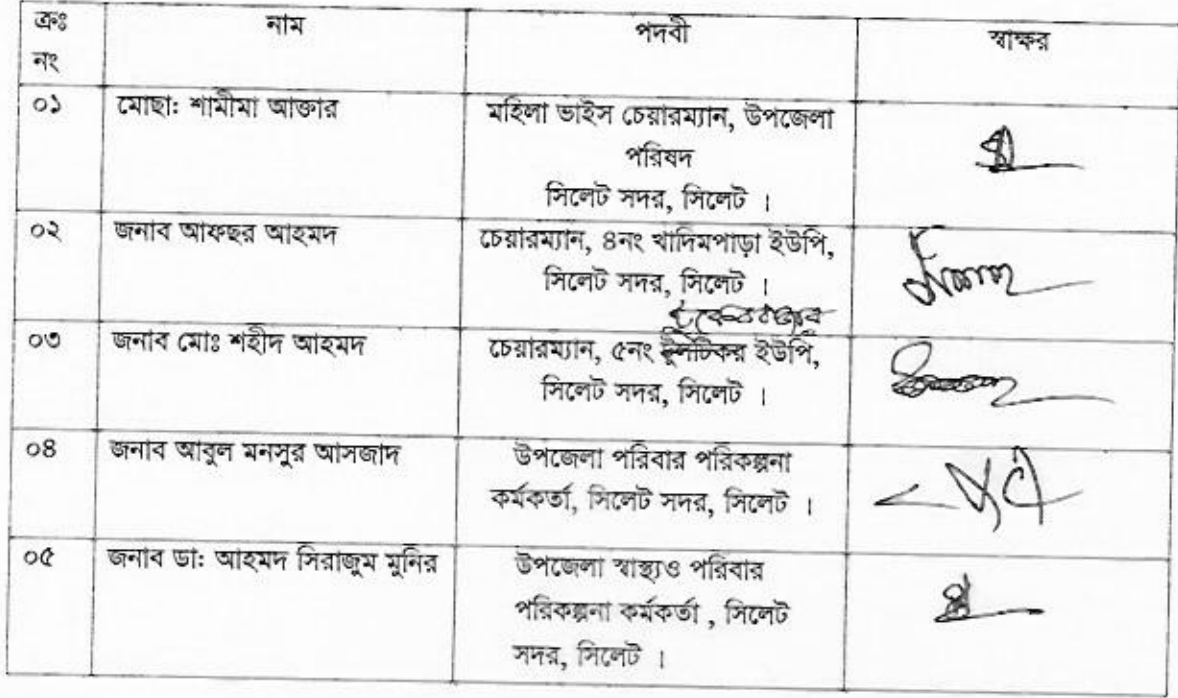 ক্রঃ নং নাম পদবী স্বাক্ষর
০১ মোছা: শামীমা আক্তার মহিলা ভাইস চেয়ারম্যান, উপজেলা
পরিষদ
সিলেট সদর, সিলেট ।
০২ জনাব আফছর আহমদ চেয়ারম্যান, ৪নং খাদিমপাড়া ইউপি,
সিলেট সদর, সিলেট ।
০৩ জনাব মোঃ শহীদ আহমদ চেয়ারম্যান, ৫নং টুলটিকর ইউপি,
সিলেট সদর, সিলেট ।
০৪ জনাব আবুল মনসুর আসজাদ উপজেলা পরিবার পরিকল্পনা
কর্মকর্তা, সিলেট সদর, সিলেট ।
০৫ জনাব ডা: আহমদ সিরাজুম মুনির উপজেলা স্বাস্থ্যও পরিবার
পরিকল্পনা কর্মকর্তা , সিলেট
সদর, সিলেট ।